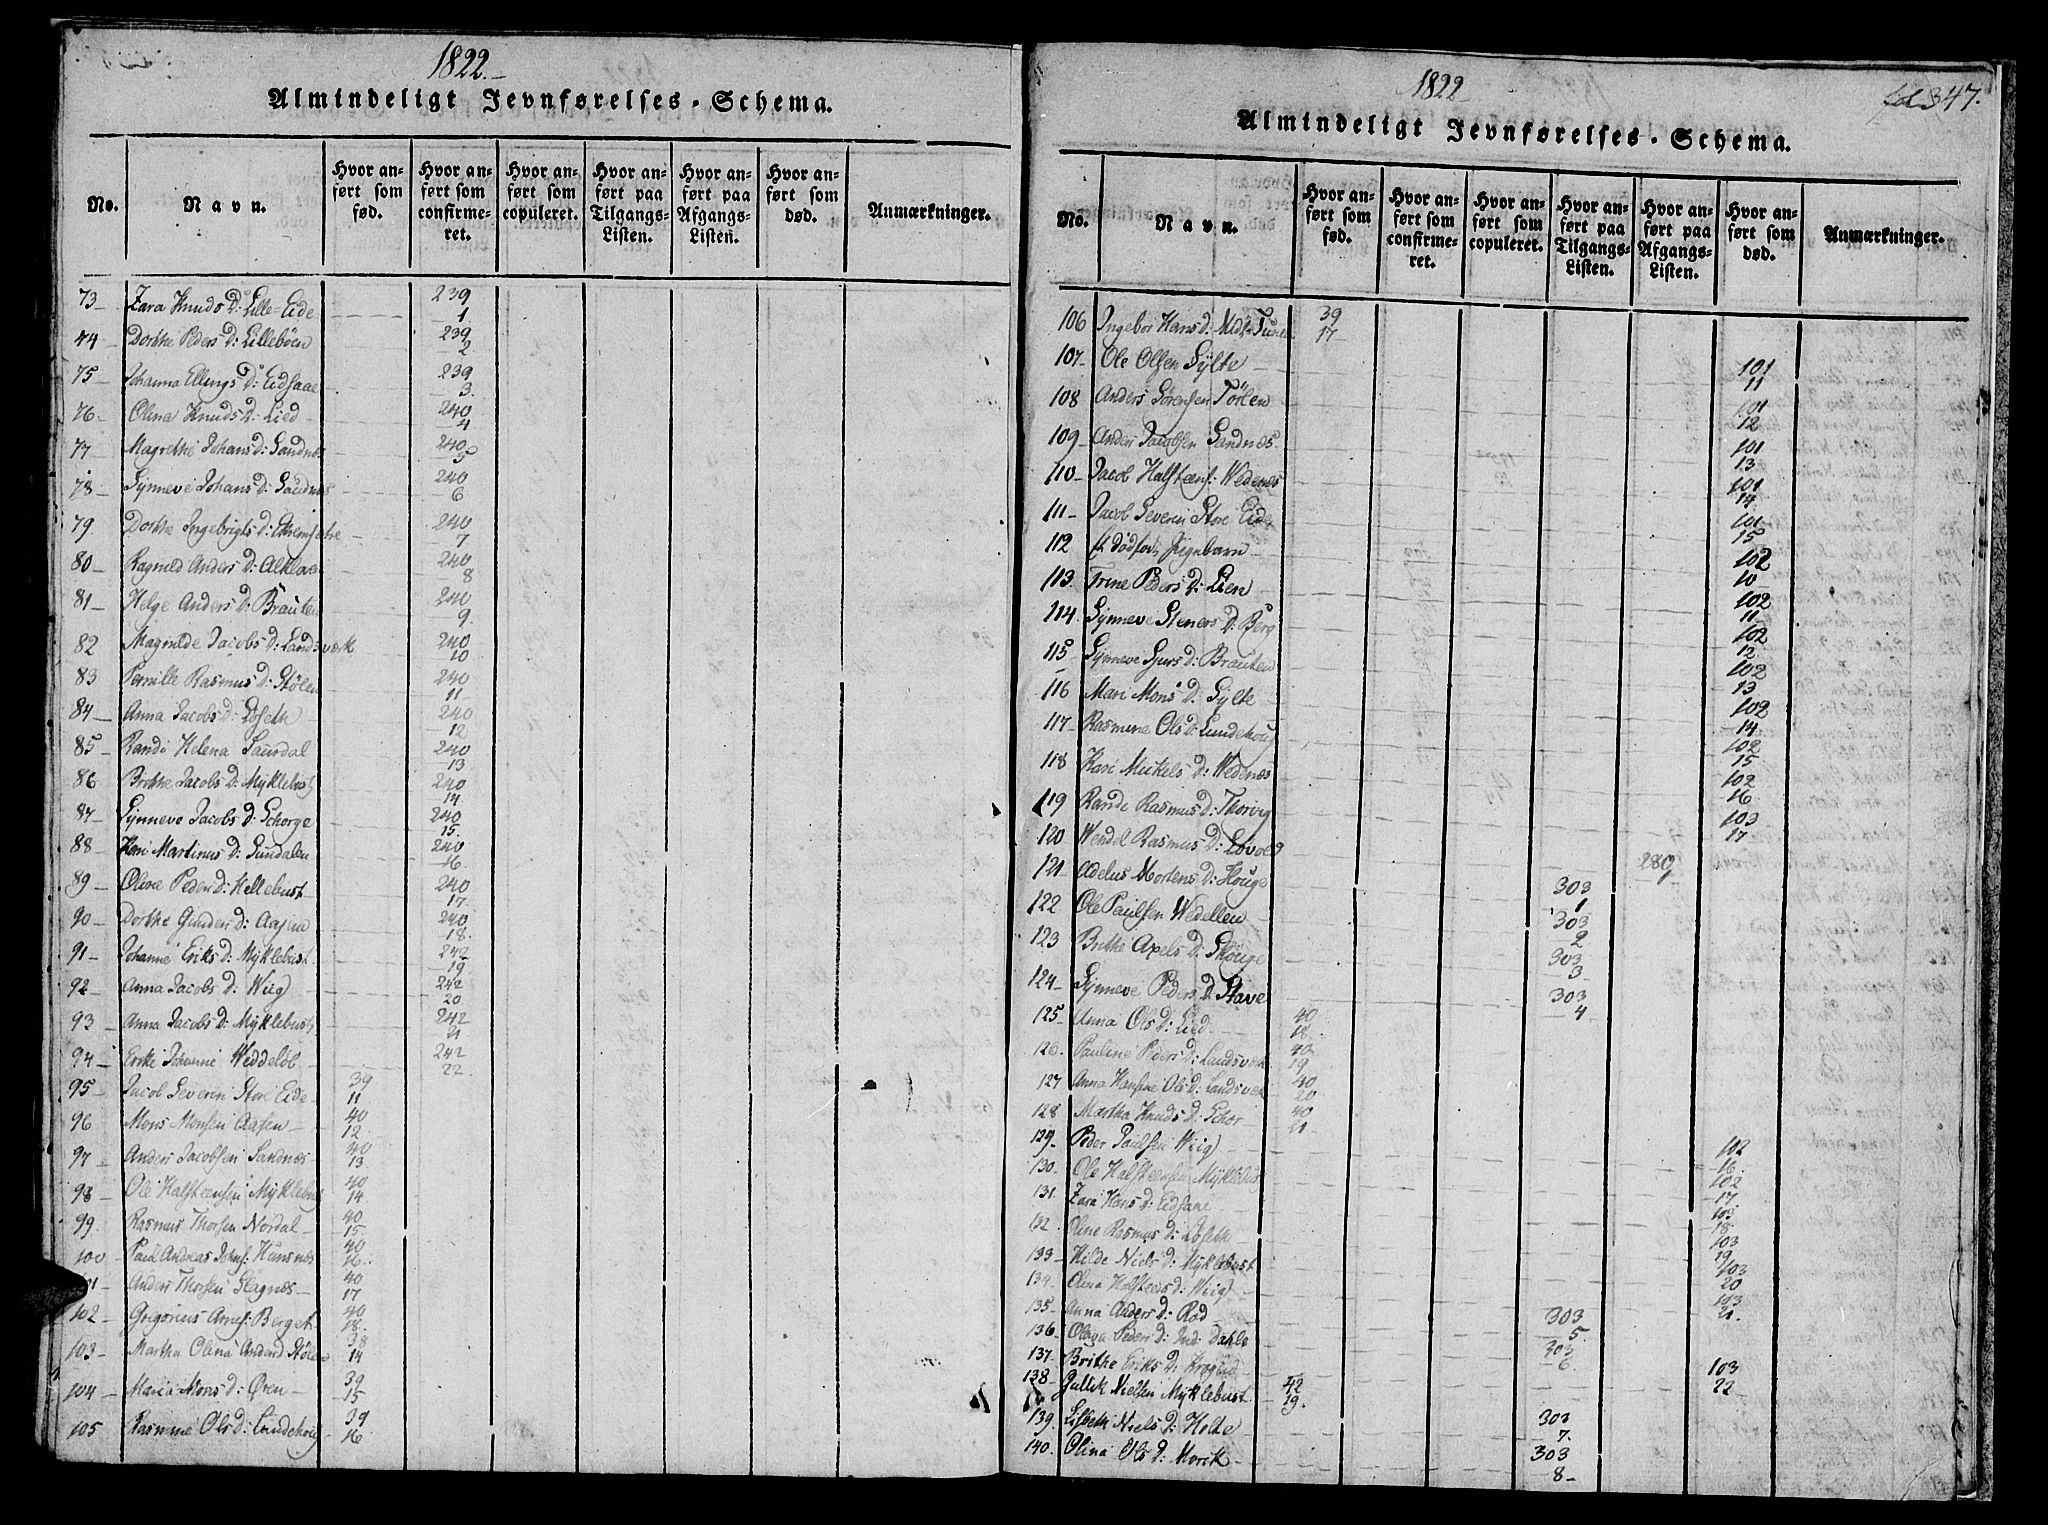 1822.
Almindeligt Jevnførelses-Schema.
No. Navn. Hvor anført som fød. Hvor anført som confirmeret. Hvor anført som copuleret. Hvor anført paa Tilgangs-Listen. Hvor anført paa Afgangs-Listen. Hvor anført som død. Anmærkninger.
73 Zara Knuds D: Lille-Eide 239 1
74 Dorthe Peders D: Lillebøen 239 2
75 Johanna Ellings D: Eidsaae 239 3.
76 Olina Knuds D: Lied 240 4
77 Magrethe Johans D: Sandnæs 240 5
78 Synneve Johans D: Sandnæs 240 6
79 Dorthe Ingebrigts D: 240 7
80 Ragnild Anders D: 240 8
81 Helge Anders D: Brauten 240 9.
82 Magnilde Jacobs D: Landsværk 240 10
83 Pernille Rasmus D: Stølen 240 11
84 Anna Jacobs D: Løseth 240 12
85 Randi Helena Saurdal 240 13
86 Brithe Jacobs D: Myklebust 240 14
87 Synneve Jacobs D: Schorge 240 15.
88 Kari Martinus D: Sundalen 240 16
89 Oline Peder D: Hellebust 240 17
90 Dorthe Gunder D: Aasen 240 18.
91 Johanne Eriks D: Myklebust 242 19
92 Anna Jacobs D: Wiig 242 20
93 Anna Jacobs D: Myklebust 242 21
94 Johanne Weddeløb 242 22
95 Jacob Severin Store Eide 39 11
96 Mons Monsen Aasen 40 12
97 Anders Jacobsen Sandnæs 40 13
98 Ole Halsteensen Myklebust 40 14
99. Rasmus Thorsen Nordal 40 15
100 Paul Andreas Johns: Hunsnæs 40 16
101 Anders Thorsen Slagnæs 40 17
102 Gregorius Arnes: Berget 40 18.
103 Martha Olina Anders D Stølen 38 14
104 Maria Mons D: Øren 39 15
105 Rasmine Ols D: Lundehoug 39 16
1822
fol 347.
Almindeligt Jevnførelses-Schema.
No. Navn. Hvor anført som fød. Hvor anført som confirmeret. Hvor anført som copuleret. Hvor anført paa Tilgangs-Listen. Hvor anført paa Afgangs-Listen. Hvor anført som død. Anmærkninger.
106 Ingebor Hans D: Midt-Tunem 39 17
107 Ole Olsen Sylte 101 11
108 Anders Sørensen Tørlen 101 12
109 Anders Jacobsen Sandnæs 101 13
110 Jacob Halsteens: Wedenæs 101 14
111 Jacob Severin Store Eide 101 15
112 et dødfødt Pigebarn 102 10
113. Trine Peders D: Lien 102 11
114. Synneve Steners D: Berg 102 12
115 Synneve Sjurs D: Brauten 102 13
116 Mari Mons D: Sylte 102 14
117 Rasmine Ols D: Lundehoug 102 15
118 Kari Mickels D: Wedenæs 102 16
119 Randi Rasmus D: Thorvig 103 17
120 Wendel Rasmus D: Lovold 280 1
121 Adelus Mortens D: Houge 303 1
122 Ole Paulsen Wedellen 303 2
123 Brithe Axels D: Skouge 303 3
124 Synneve Peders D: Stave 303 4
125 Anna Ols D: Lied 40 18.
126. Pauline Peders D: Landsværk 40 19
127 Anna Hansine Ols D: Landsværk 40 20
128 Martha Knuds D: Schor 40 21
129 Peder Paulsen Wiig 102 16.
130 Ole Halsteensen Myklebust 102 17
131. Zara Hans D: Eidsaae 103 18
132. Oline Rasmus D: Løseth 103 19
133 Hilde Niels D: Myklebust 103 20
134. Olina Halsteens D: Wiig 103 21.
135 Anna Anders D: Rød 303 5.
136 Peders D: Ind: Dahle 303 6.
137 Brithe Eriks D: 103 22
138 Gullik Nielsen Myklebust 42 19.
139. Lisbeth Niels D: Holte 303 7.
140. Olina Ols D: Morck 303 8